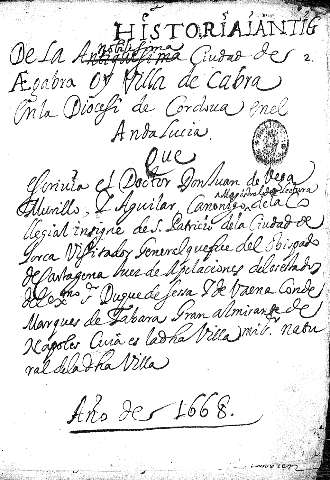 HISTORIA I ANTIG
nobilisima
De la Antiquissima Ciudad de
Ægabra oy Villa de Cabra
En la Diocesi de Cordova en el
Andalucia.
Que
escrivia el Doctor Don Juan de Vega
Murillo, Y Aguilar, Canonigo de la Co
Magistral de Letura
llegial insigne de S. Patricio de la Ciudad de
Lorca Visitador General que fue del Obispado
de Cartagena Juez de Apelaciones de los estados
del Exmo Sr Duque de Sessa Y de Vaena Conde
Marques de Tabara Gran Almirante de
Napoles Cuia es la dha Villa natu
ral de la dha Villa
Año de 1668.